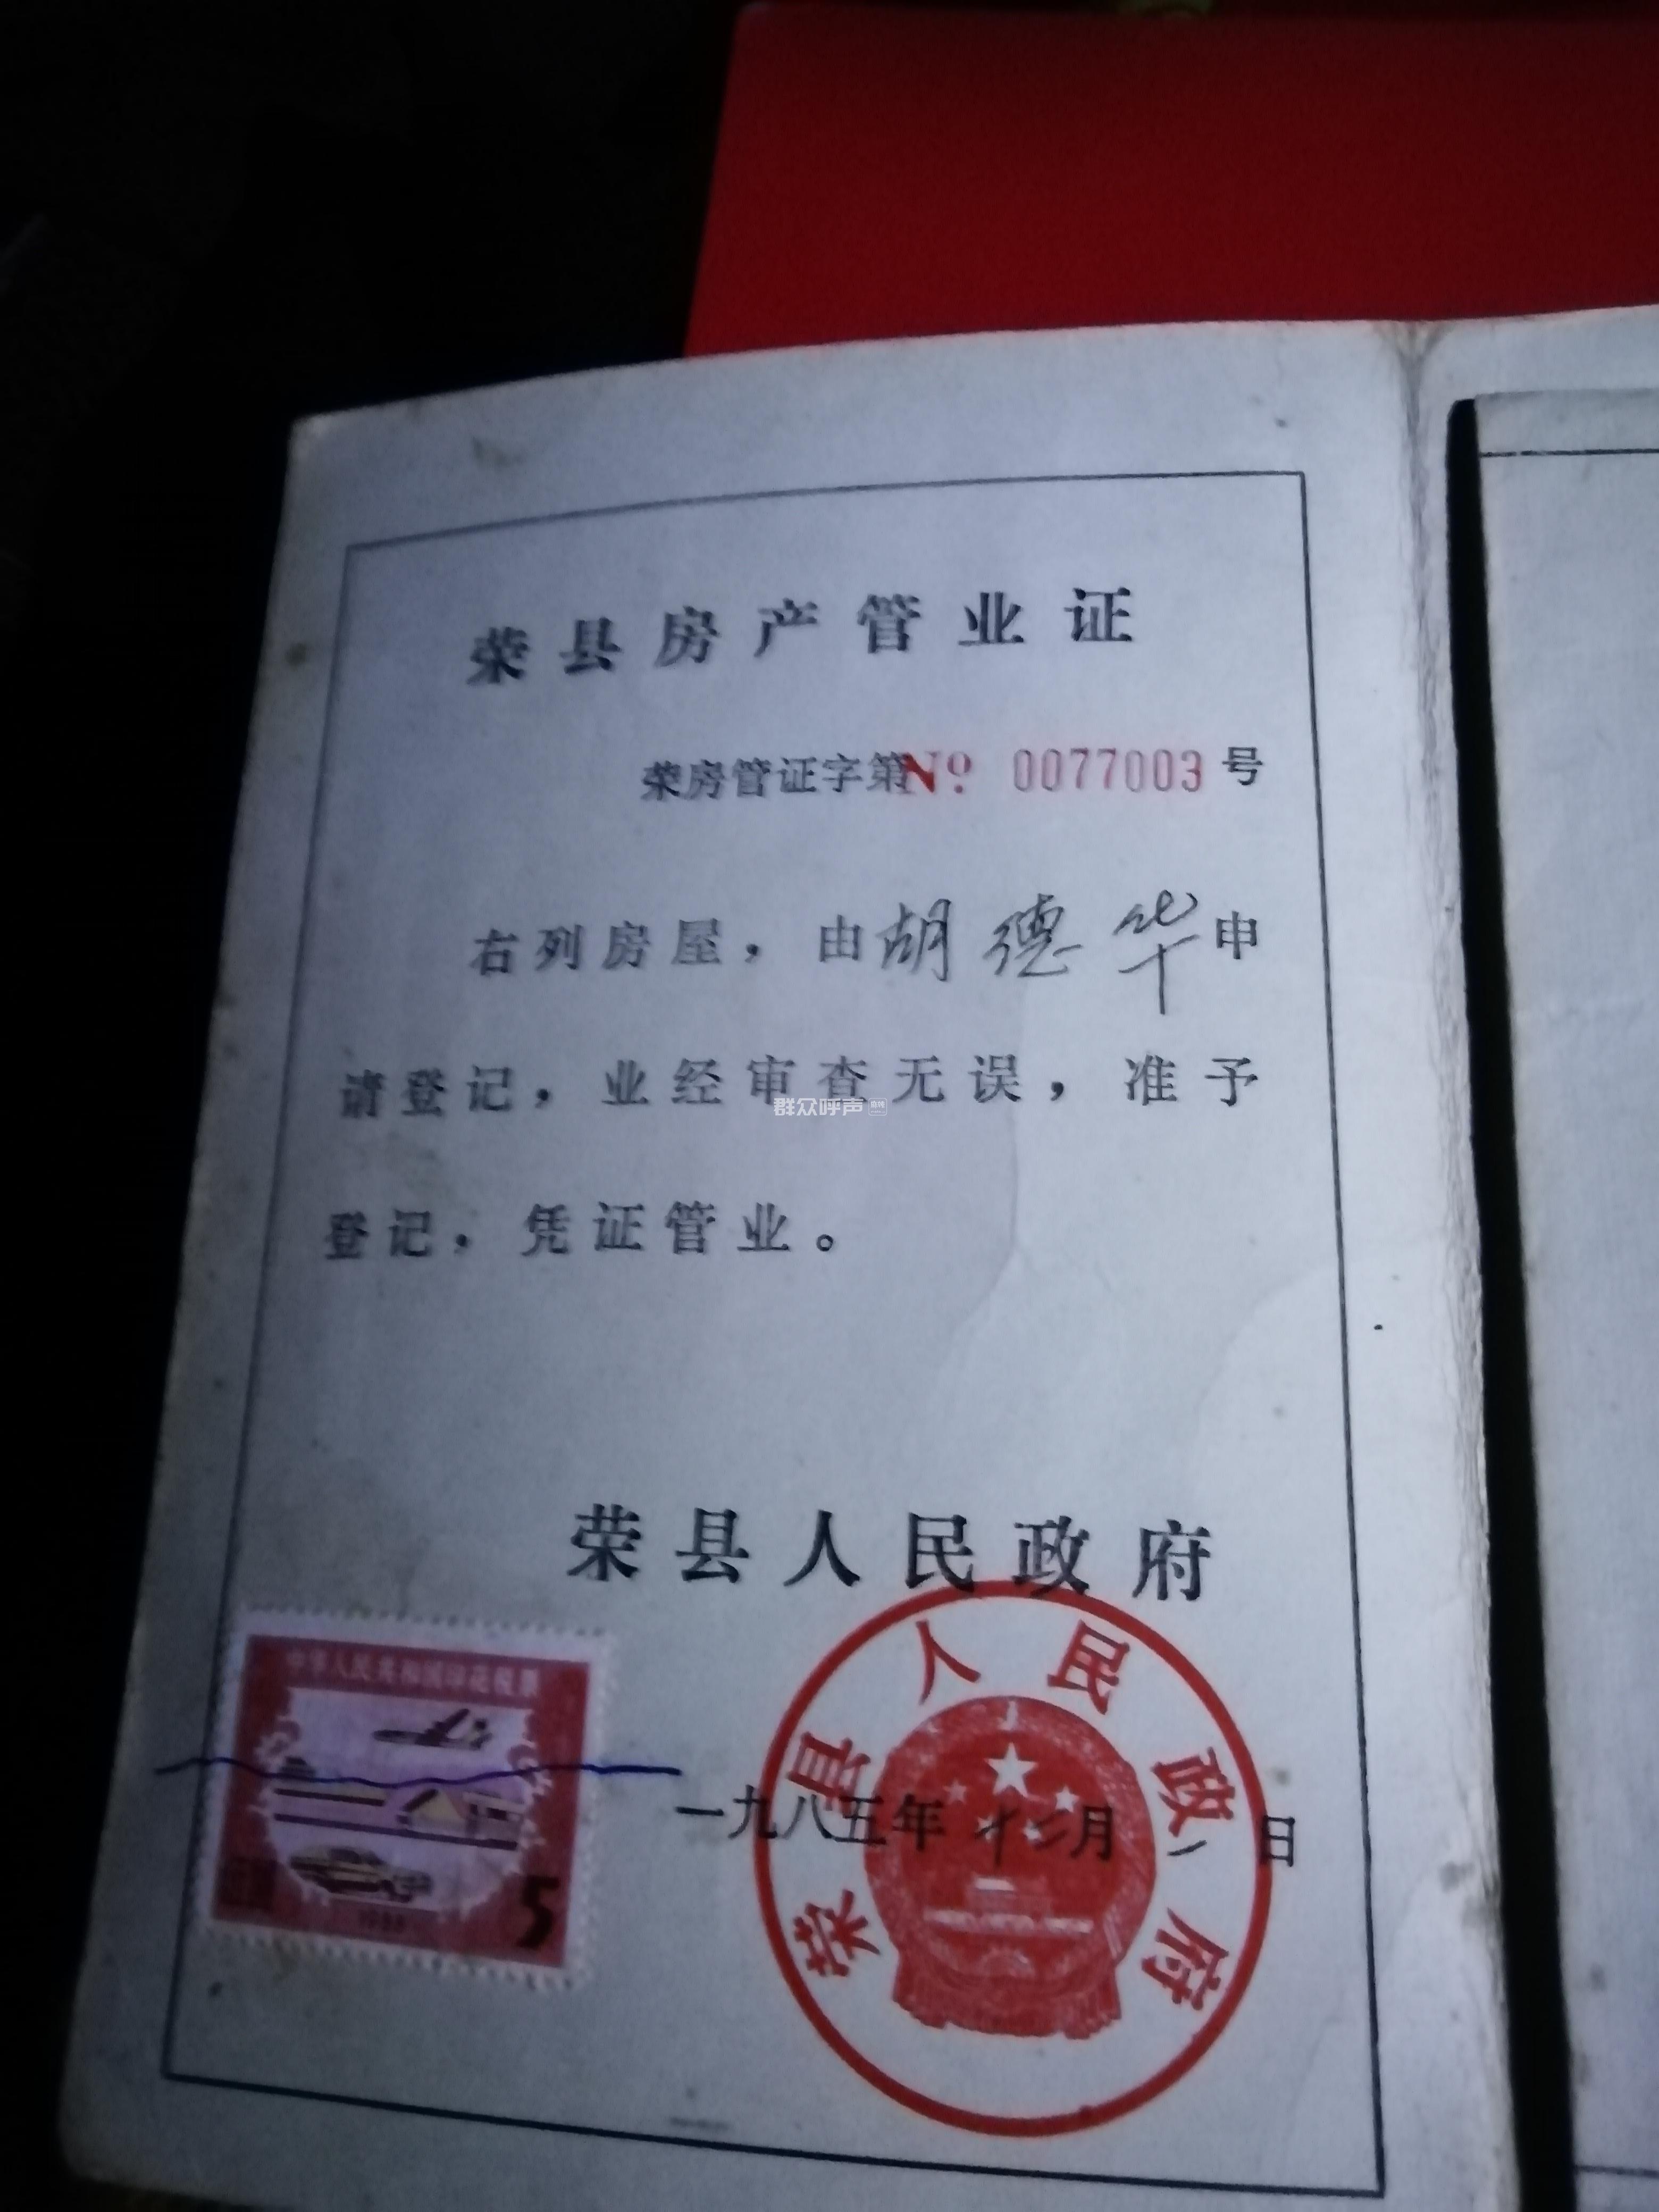 荣县房产管业证
荣房管证字第№ 0077003 号
右列房屋，由胡德华申
请登记，业经审查无误，准予
群众呼声
登记，凭证管业。
荣县人民政府
荣县人民政府
中华人民共和国印花税票
一九八五年十二月 日
1988
5